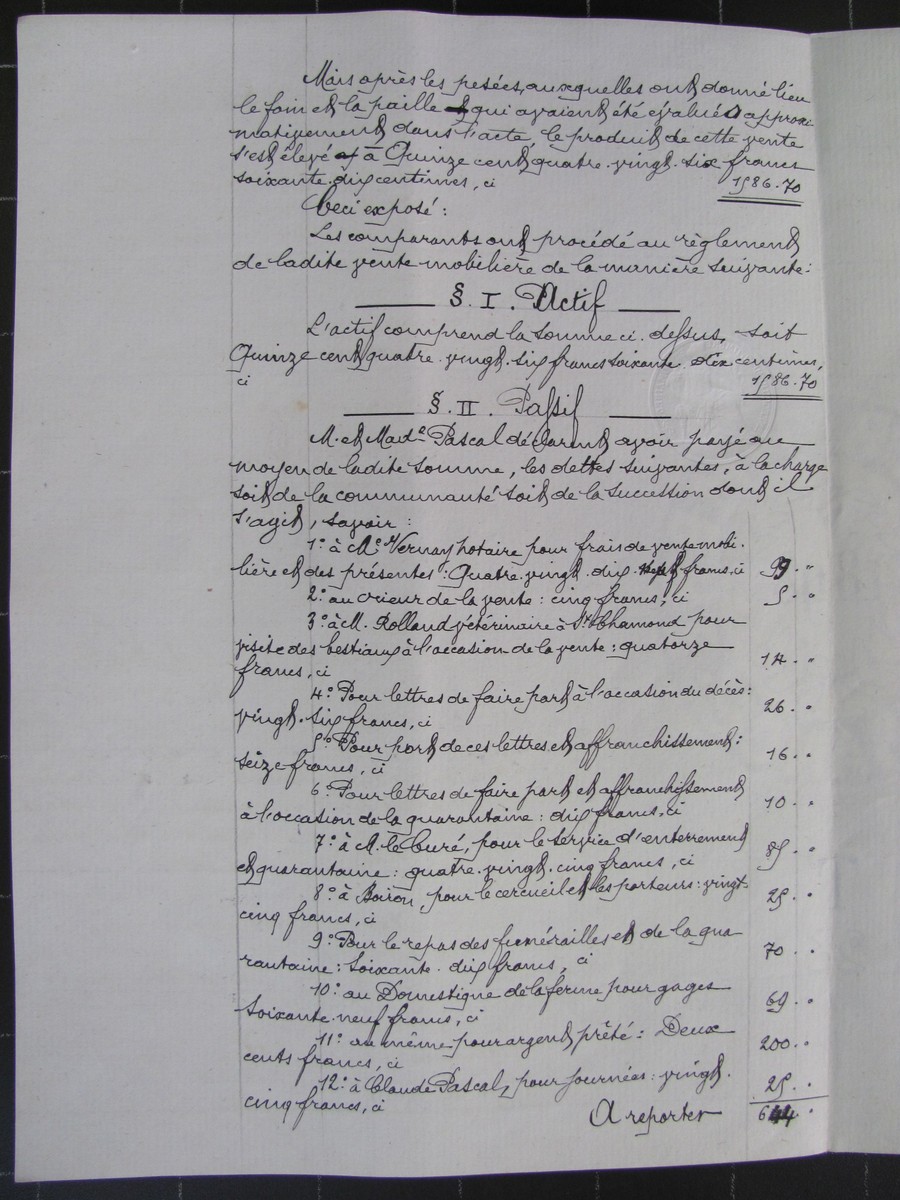 Mais après les pesées, auxquelles ont donné lieu
le foin et la paille et qui avaient été évalués approxi
mativement dans l'acte, le produit de cette vente
s'est élevé à Quinze cent quatre-vingt-six francs
soixante-dix centimes, ci 1586.70
Ceci exposé :
Les comparants ont procédé au règlement
de ladite vente mobilière de la manière suivante :
§. I. Actif
L'actif comprend la somme ci-dessus, soit
Quinze cent quatre-vingt-six francs soixante-dix centimes,
ci 1586.70
§. II. Passif
M. et Made Pascal déclarent avoir payé au
moyen de ladite somme, les dettes suivantes, à la charge
soit de la communauté soit de la succession dont il
s'agit, savoir :
1° à Me Vernay notaire pour frais de vente mobi-
lière et des présentes : Quatre-vingt-dix-neuf francs, ci 99. "
2° au crieur de la vente : cinq francs, ci 5. "
3° à M. Rolland vétérinaire à St Chamond pour
visite des bestiaux à l'occasion de la vente : quatorze
francs, ci 14. "
4° Pour lettres de faire part à l'occasion du décès :
vingt-six francs, ci 26. "
5° Pour port de ces lettres et affranchissement :
seize francs, ci 16. "
6° Pour lettres de faire part et affranchissement
à l'occasion de la quarantaine : dix francs, ci 10. "
7° à M. le Curé, pour le service d'enterrement
et quarantaine : quatre-vingt-cinq francs, ci 85. "
8° à Boiron, pour le cercueil et les porteurs : vingt-
cinq francs, ci 25. "
9° Pour le repas des funérailles et de la qua
rantaine : soixante-dix francs, ci 70. "
10° au Domestique de la ferme pour gages
soixante-neuf francs, ci 69. "
11° au même pour argent prêté : Deux
cents francs, ci 200. "
12° à Claude Pascal, pour journées : vingt-
cinq francs, ci 25. "
A reporter 644. "